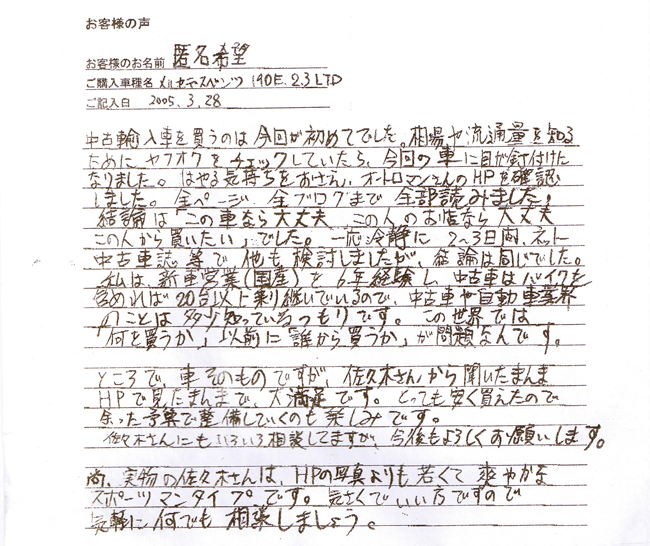 お客様の声
お客様のお名前 匿名希望
ご購入車種名 メルセデスベンツ 190E. 2.3 LTD
ご記入日 2005. 3. 28
中古輸入車を買うのは今回が初めてでした。相場や流通量を知る
ためにヤフオクをチェックしていたら、今回の車に目が釘付けに
なりました。はやる気持ちをおさえ、オートロマンさんのHPを確認
しました。全ページ、全ブログまで全部読みました！
結論は「この車なら大丈夫 この人のお店なら大丈夫
この人から買いたい」でした。一応冷静に 2〜3日間、ネット
中古車誌等で他も検討しましたが、結論は同じでした。
私は、新車営業(国産)を6年経験し、中古車はバイクも
含めれば20台以上乗り継いでいるので、中古車や自動車業界
のことは多少知っているつもりです。この世界では
「何を買うか」以前に「誰から買うか」が問題なんです。
ところで、車そのものですが、佐久木さんから聞いたまんま
HPで見たまんまで、大満足です。とっても安く買えたので
余った予算で整備していくのも楽しみです。
佐久木さんにもいろいろ相談してますが、今後もよろしくお願いします。
尚、実物の佐久木さんは、HPの写真よりも若くて爽やかな
スポーツマンタイプです。気さくでいい方ですので
気軽に何でも相談しましょう。